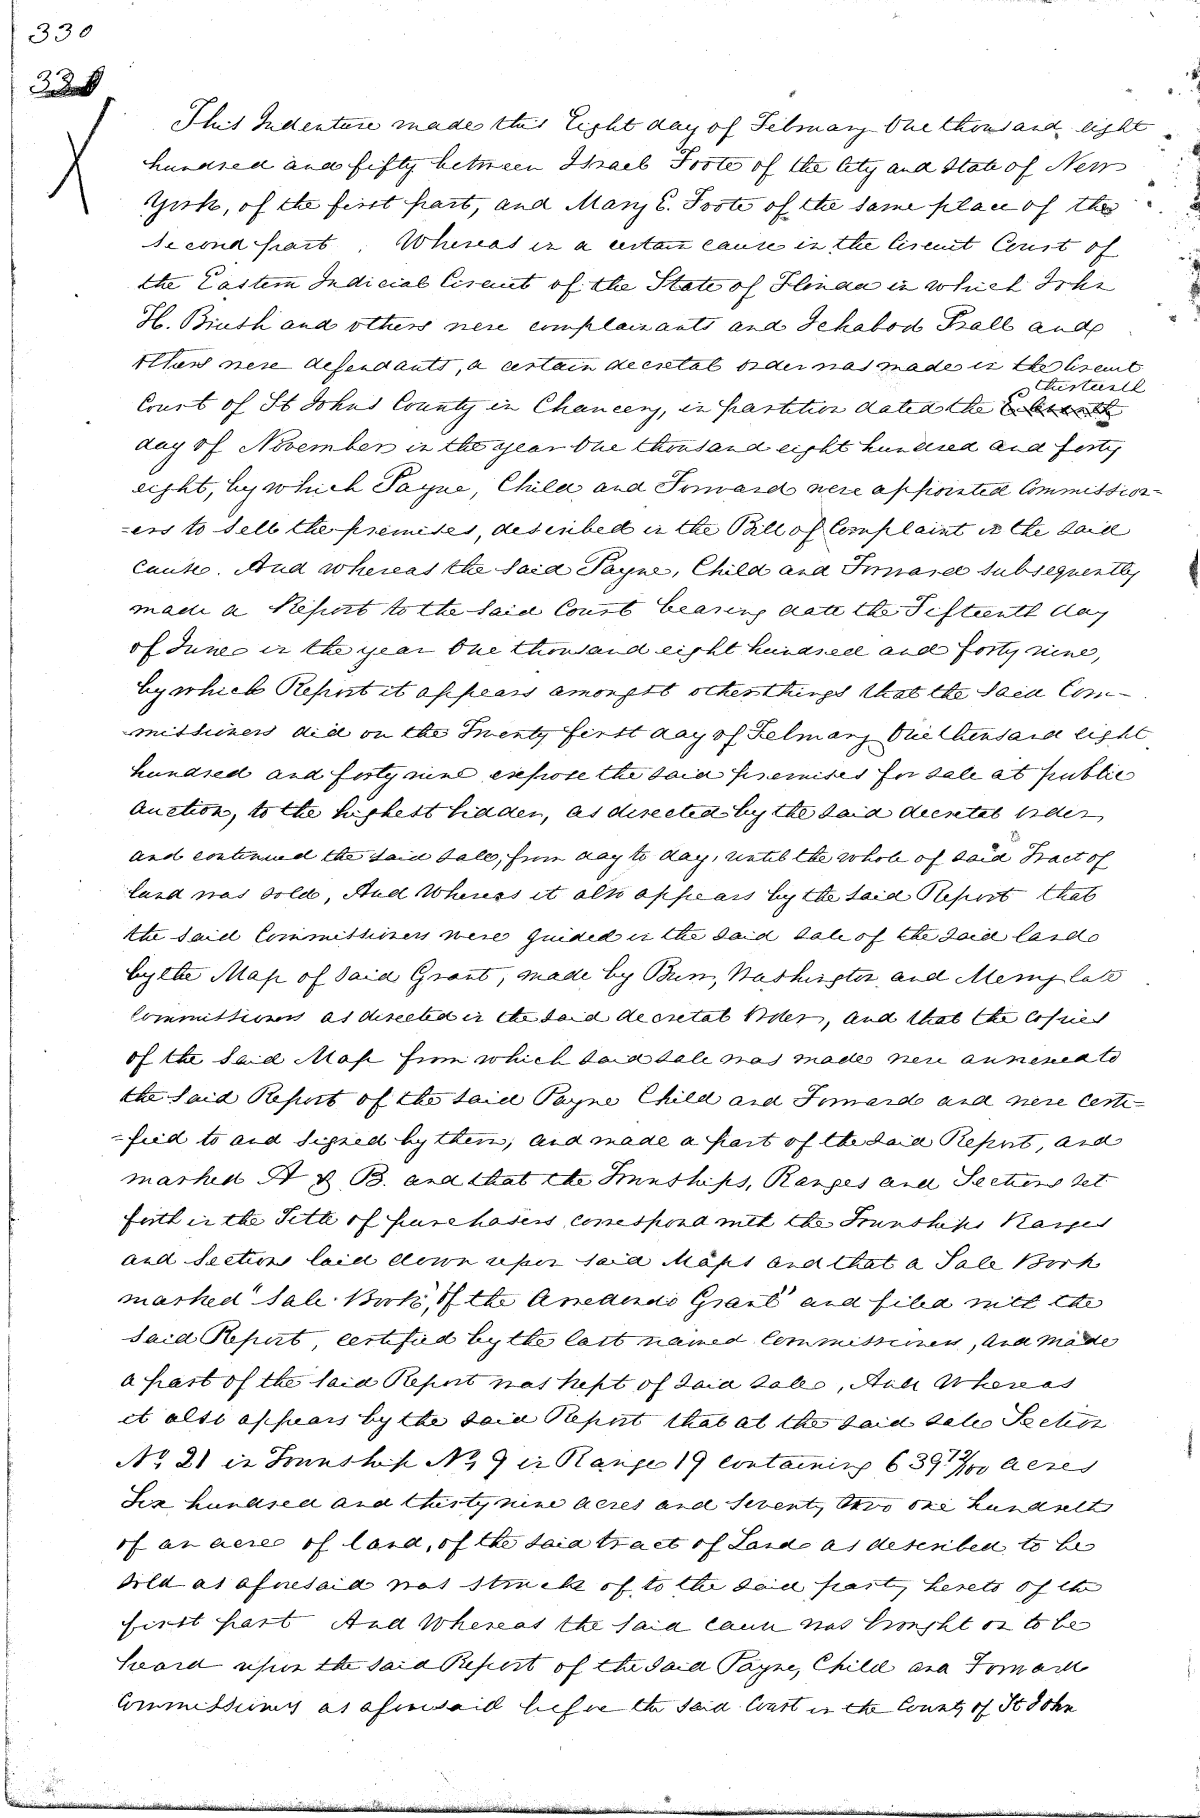 330
This Indenture made this Eight day of February One thousand eight
hundred and fifty between Israel Foote of the City and State of New
York, of the first part, and Mary E. Foote of the same place of the
second part. Whereas in a certain cause in the Circuit Court of
the Eastern Judicial Circuit of the State of Florida in which John
H. and others were complainants and Ichabod and
others were defendants, a certain decretal order was made in the Circuit
thirteenth
Court of St Johns County in Chancery, in partition dated the
day of November in the year One thousand eight hundred and forty
eight, by which Payne, Child and Forward were appointed Commission=
=ers to sell the premises, described in the Bill of Complaint in the said
Cause. And whereas the said Payne, Child and Forward subsequently
made a Report to the said Court bearing date the Fifteenth day
of June in the year One thousand eight hundred and forty nine,
by which Report it appears amongst other things that the said Com-
missioners did on the Twenty first day of February One thousand eight
hundred and forty nine expose the said premises for sale at public
auction, to the highest bidder, as directed by the said decretal order
and continued the said sale, from day to day, until the whole of said Tract of
land was sold, And Whereas it also appears by the said Report that
the said Commissioners were guided in the said sale of the said lands
by the Map of said Grant, made by Burr, Washington and late
Commissioners as directed in the said decretal Order, and that the Copies
of the said Map from which said sale was made were annexed to
the said Report of the said Payne Child and Forward and were Certi=
=fied to and signed by them, and made a part of the said Report, and
marked A & B. and that the Townships, Ranges and Sections set
forth in the Title of purchasers correspond with the Townships Ranges
and Sections laid down upon said Maps and that a Sale Book
marked "Sale Book, of the Arredondo Grant" and filed with the
said Report, certified by the last named Commissioners, and made
a part of the said Report was kept of said sales, And Whereas
it also appears by the said Report that at the said sales Section
No 21 in Township No 9 in Range 19 containing 639 72/100 acres
Six hundred and thirty nine acres and seventy two one hundredths
of an acre of land, of the said tract of Land as described to be
sold as aforesaid was struck of to the said party hereto of the
first part And Whereas the said cause was brought on to be
heard upon the said Report of the said Payne, Child and Forward
Commissioners as aforesaid before the said Court in the County of St John